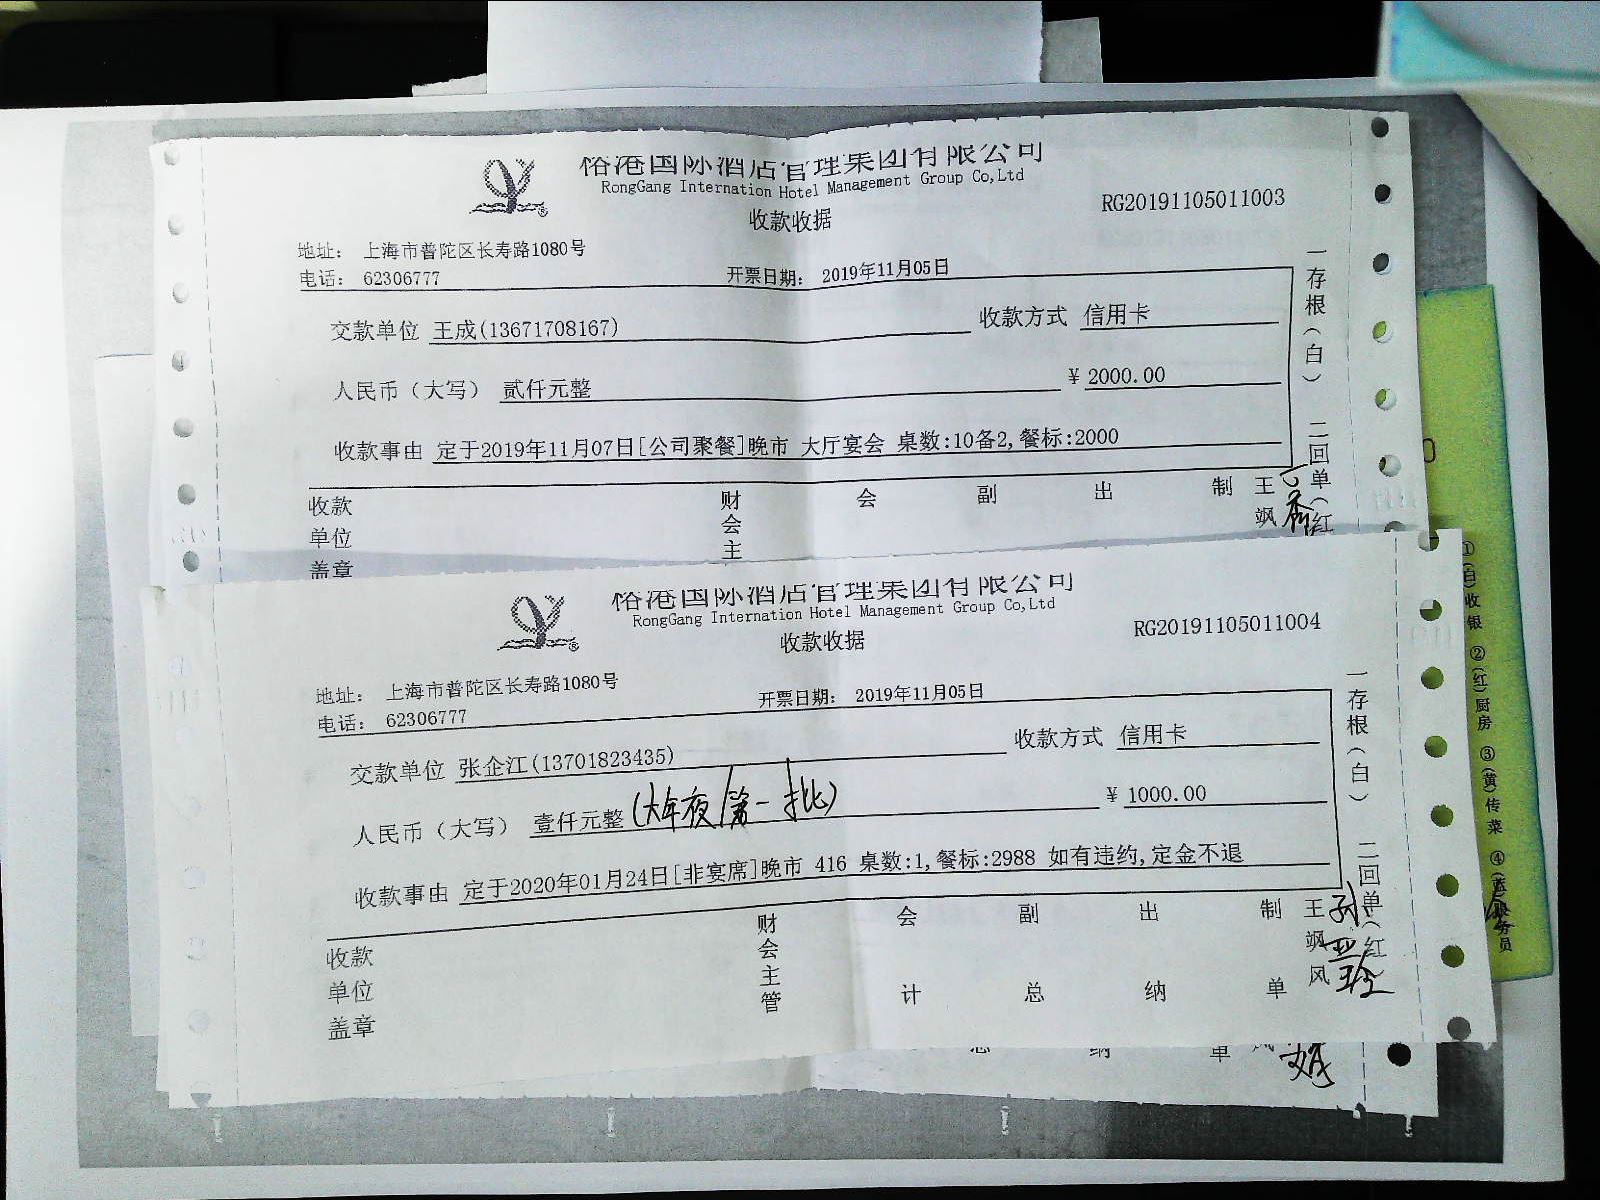 裕港国际酒店管理集团有限公司
RongGang Internation Hotel Management Group Co,Ltd
收款收据
RG20191105011003
地址： 上海市普陀区长寿路1080号
电话： 62306777 开票日期： 2019年11月05日
交款单位 王成(13671708167) 收款方式 信用卡
人民币（大写） 贰仟元整 ¥ 2000.00
收款事由 定于2019年11月07日[公司聚餐]晚市 大厅宴会 桌数:10备2,餐标:2000
收款单位盖章 财会主 会 副 出 制 王飒
一存根（白） 二回单（红
裕港国际酒店管理集团有限公司
RongGang Internation Hotel Management Group Co,Ltd
收款收据
RG20191105011004
地址： 上海市普陀区长寿路1080号
电话： 62306777 开票日期： 2019年11月05日
交款单位 张企江(13701823435) 收款方式 信用卡
人民币（大写） 壹仟元整 (大年夜第一批) ¥ 1000.00
收款事由 定于2020年01月24日[非宴席]晚市 416 桌数:1,餐标:2988 如有违约,定金不退
收款单位盖章 财会主管 会计 副总 出纳 制单 王飒风
一存根（白） 二回单（红）
总 纳 单 风
①(白)收银 ②(红)厨房 ③(黄)传菜 ④(蓝)服务员